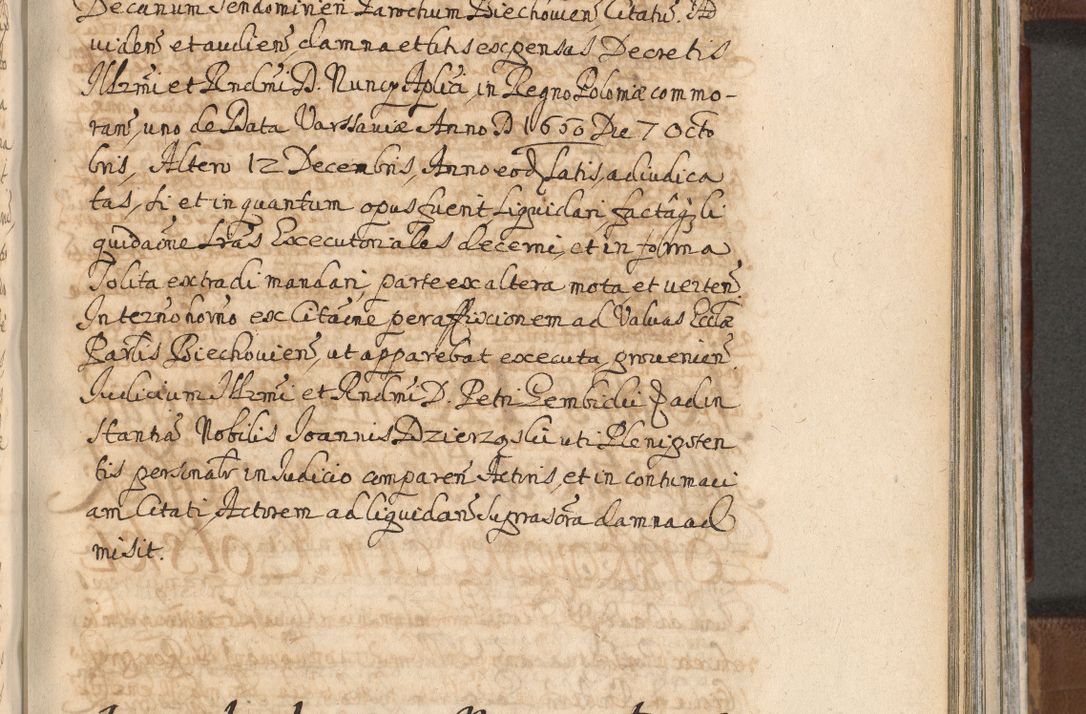 Decanum Sendomirien Parochum Biechovien Citatū. Ad
viden͂ et audien͂ damna et litis expensas Decretis
Illrmi et Rndmi D. Nuncy Aplici, in Regno Poloniæ commo-
ran͂, uno de Data Varssaviæ Anno D 1650 Die 7 Octo
bris, Altero 12 Decembris, Anno eod. Latis, adiudica
tas, si et in quantum opus fuerit, Liquidari, factaq; li
quidaōne Lrās Executoriales decerni, et in forma
Solita extradi mandari, parte ex altera mota et verten͂.
In termo horno ex Citaōne per affixionem ad Valvas Eccliæ
Parlis Biechovien͂, ut apparebat executa, provenien͂.
Iudicium Illrmi et Rndmi D. Petri Gembicki Ep. ad in
stantiā Nobilis Joannis Dzierzgski uti Plenipoten
tis personalr in Judicio comparen͂ Actoris, et in contumaci
am Citati, Actorem ad liquidan͂ suprascra damna ad
misit.